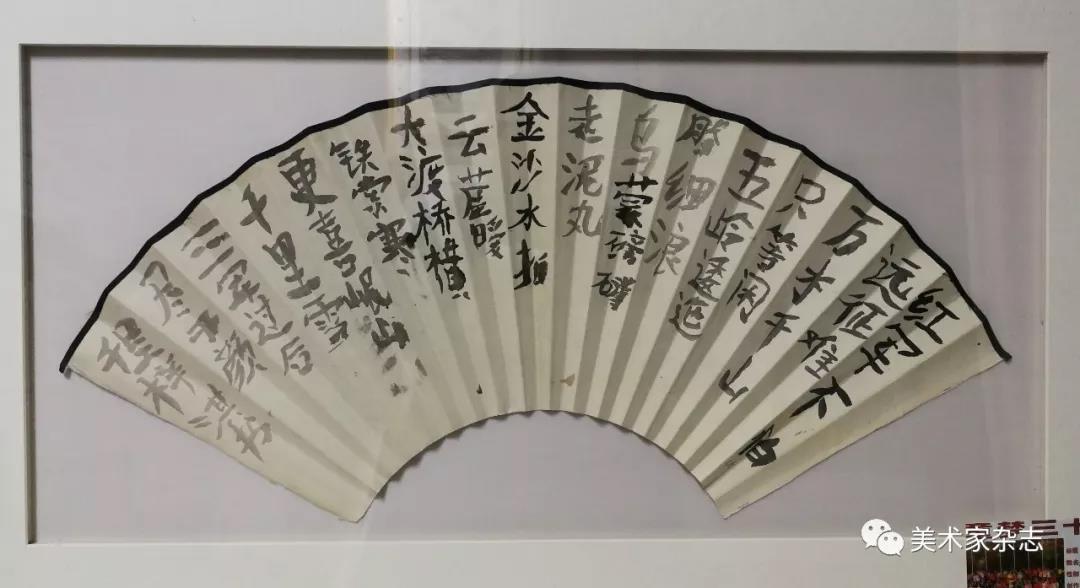 红军不怕
远征难
万水千山
只等闲
五岭逶迤
腾细浪
乌蒙磅礴
走泥丸
金沙水拍
云崖暖
大渡桥横
铁索寒
更喜岷山
千里雪
三军过后
尽开颜
程
美术家杂志
三十